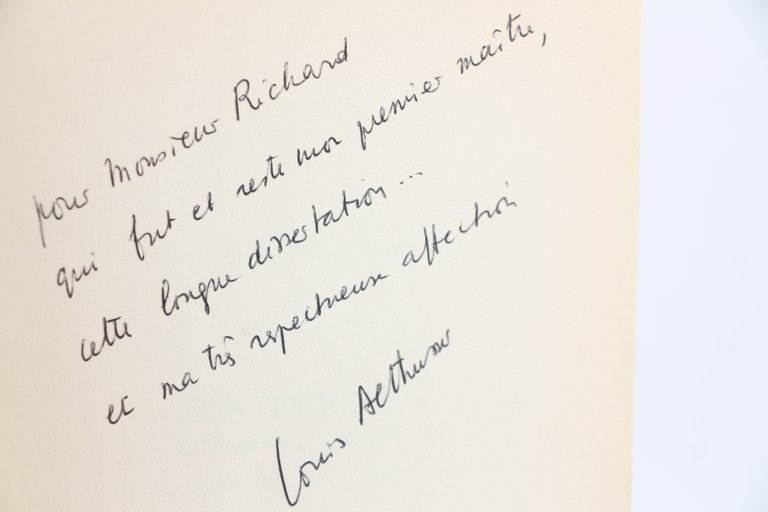 pour Monsieur Richard
qui fut et reste mon premier maître,
cette longue dissertation ...
et ma très respectueuse affection
Louis Althusser